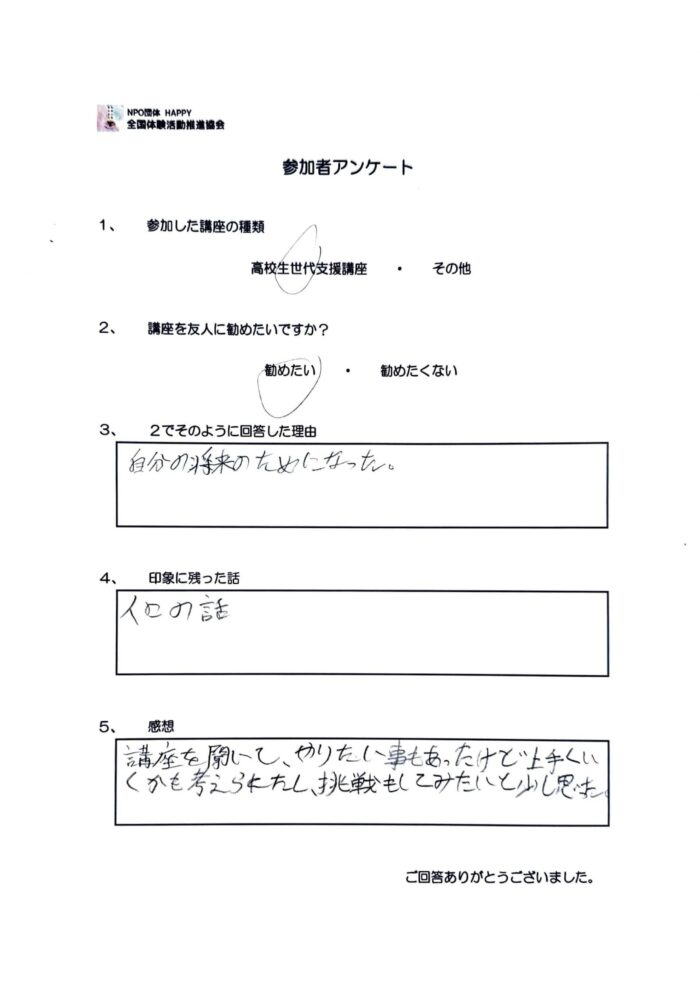 NPO団体 HAPPY
全国体験活動推進協会
参加者アンケート
1、 参加した講座の種類
高校生世代支援講座 ・ その他
2、 講座を友人に勧めたいですか？
勧めたい ・ 勧めたくない
3、 2でそのように回答した理由
自分の将来のためになった。
4、 印象に残った話
の話
5、 感想
講座を聞いて、やりたい事もあったけど上手くい
くかも考えられたし、挑戦もしてみたいと少し思った。
ご回答ありがとうございました。